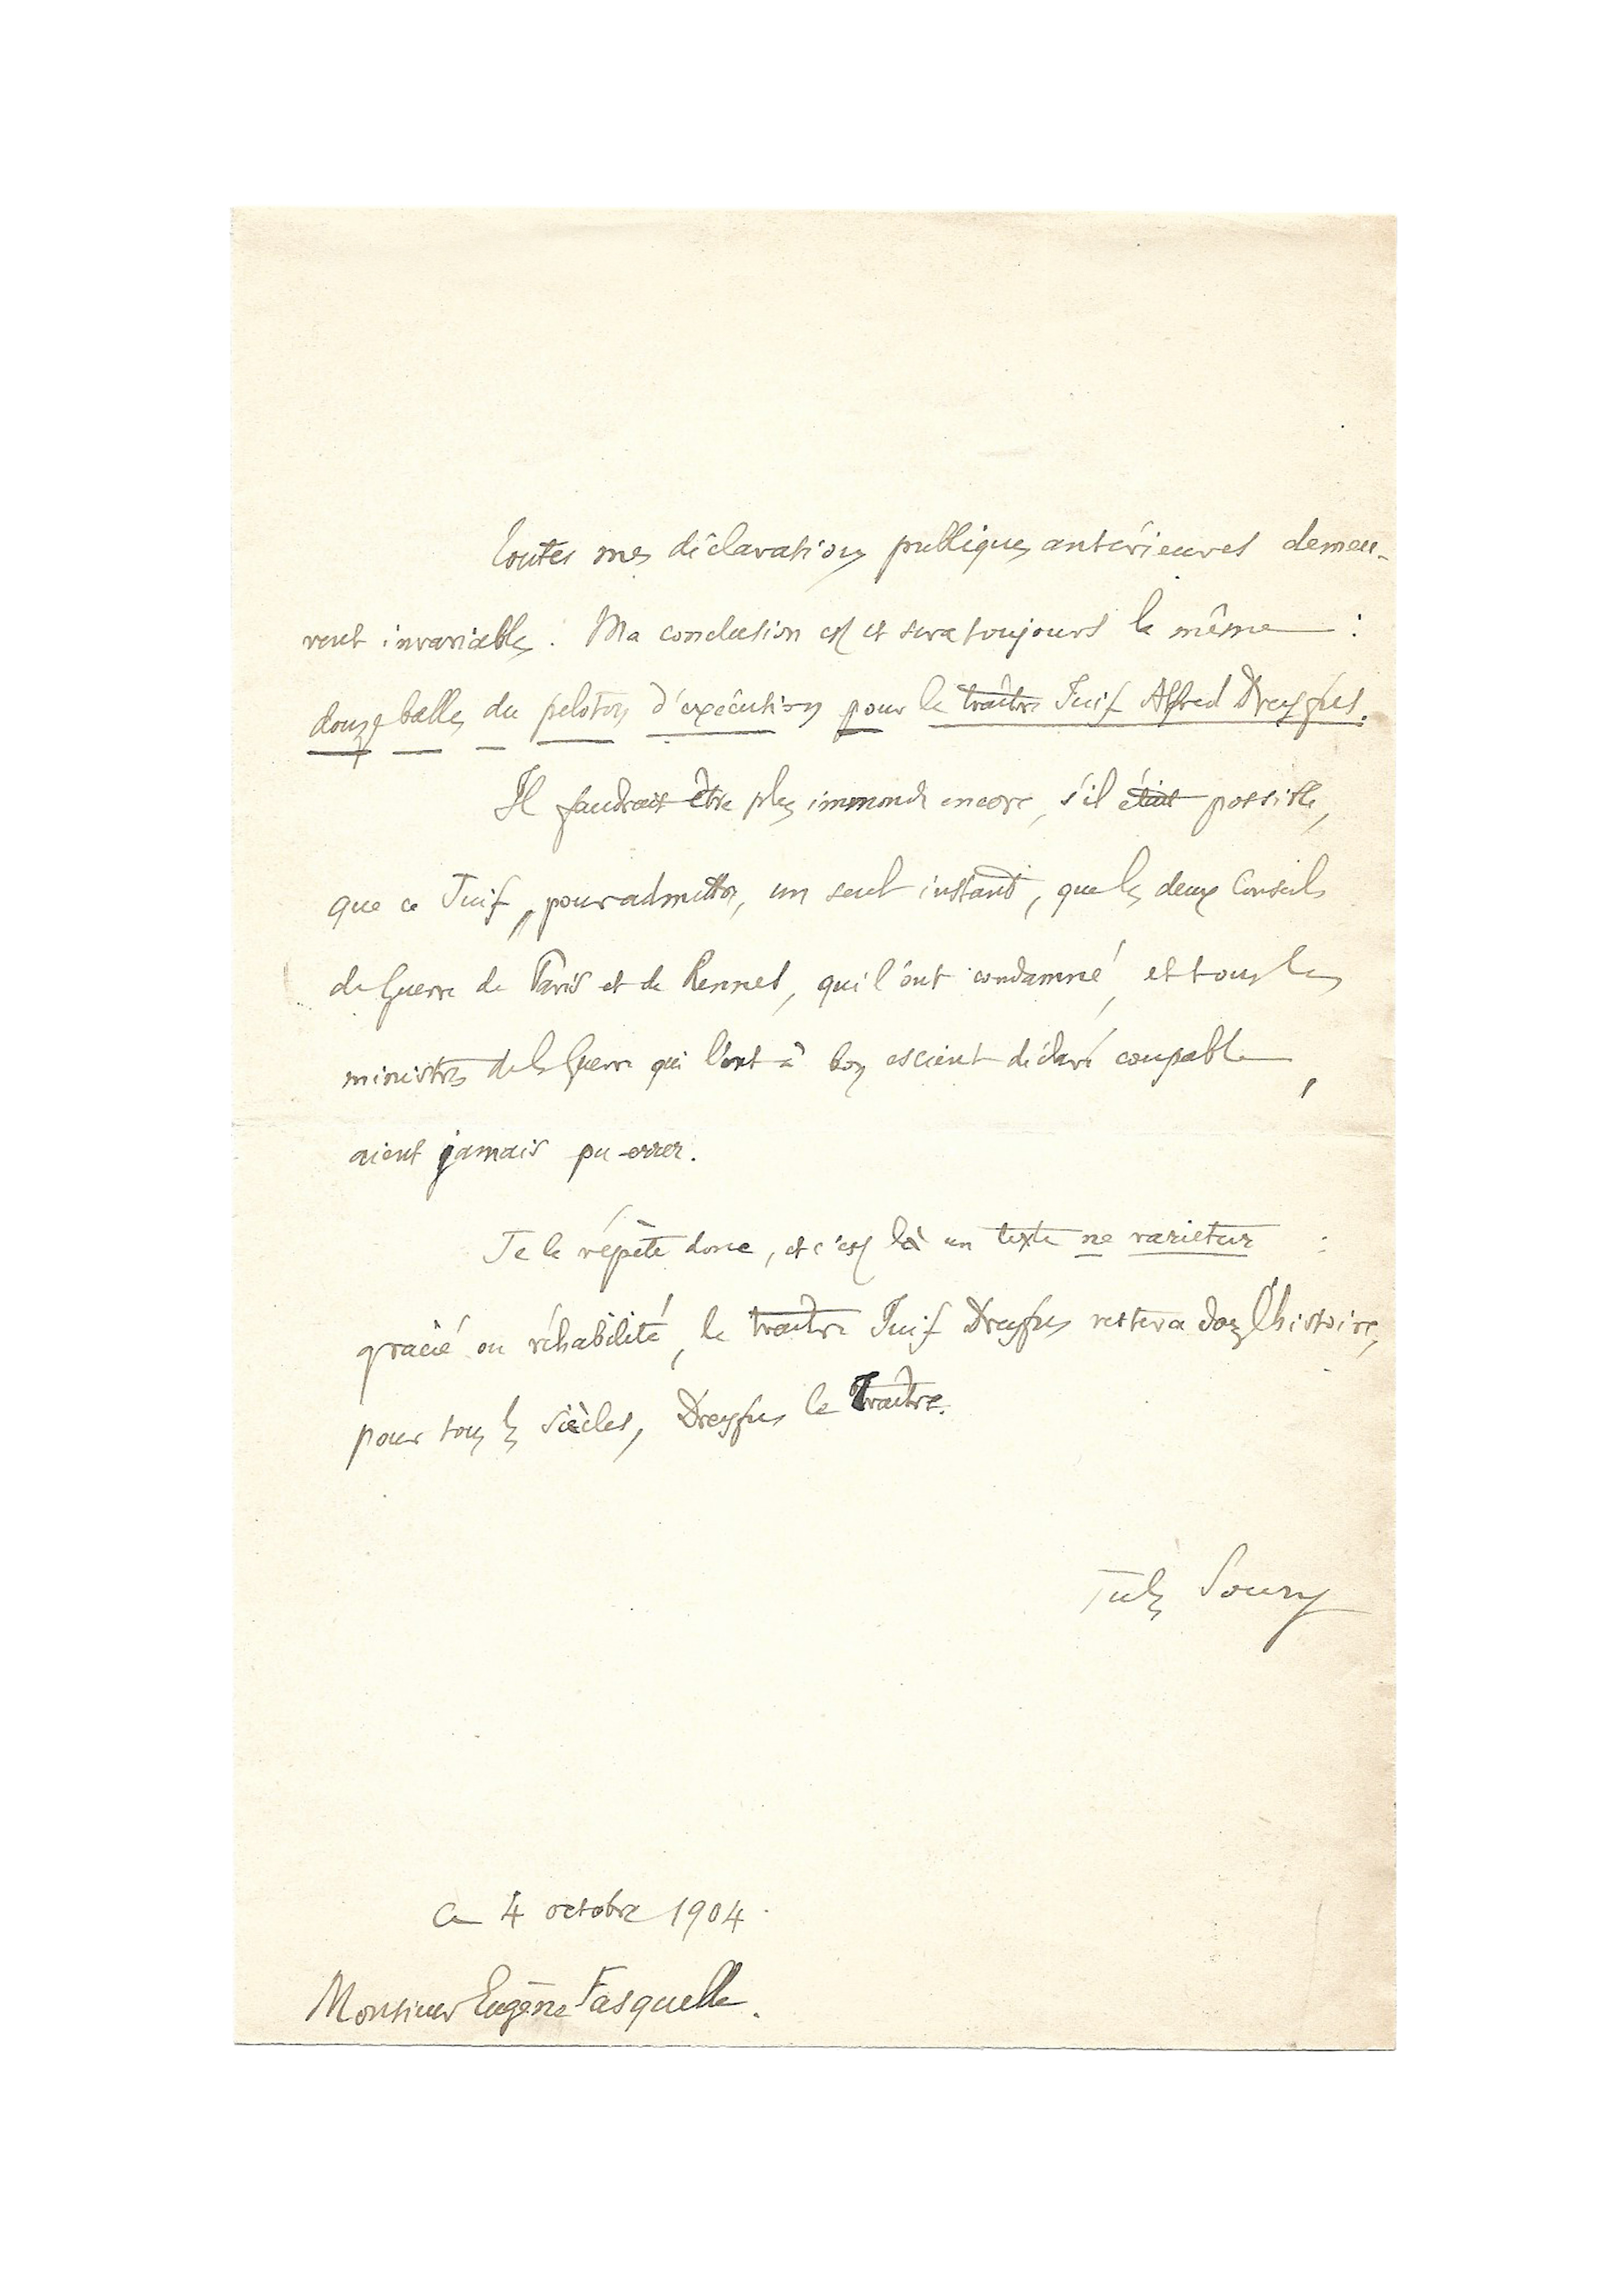 Toutes mes déclarations publiques antérieures demeu-
rent invariables. Ma conclusion est et sera toujours la même :
douze balles du peloton d'exécution pour le traître Juif Alfred Dreyfus.
Il faudrait être plus immonde encore, s'il était possible,
que ce Juif, pour admettre, un seul instant, que les deux Conseils
de Guerre de Paris et de Rennes, qui l'ont condamné, et tous les
ministres de la Guerre qui l'ont à bon escient déclaré coupable,
aient jamais pu errer.
Je le répète donc, et c'est là un texte ne varietur :
gracié ou réhabilité, le traître Juif Dreyfus restera dans l'histoire,
pour tous les siècles, Dreyfus le Traître.
Jules Soury
Ce 4 octobre 1904.
Monsieur Eugène Fasquelle.